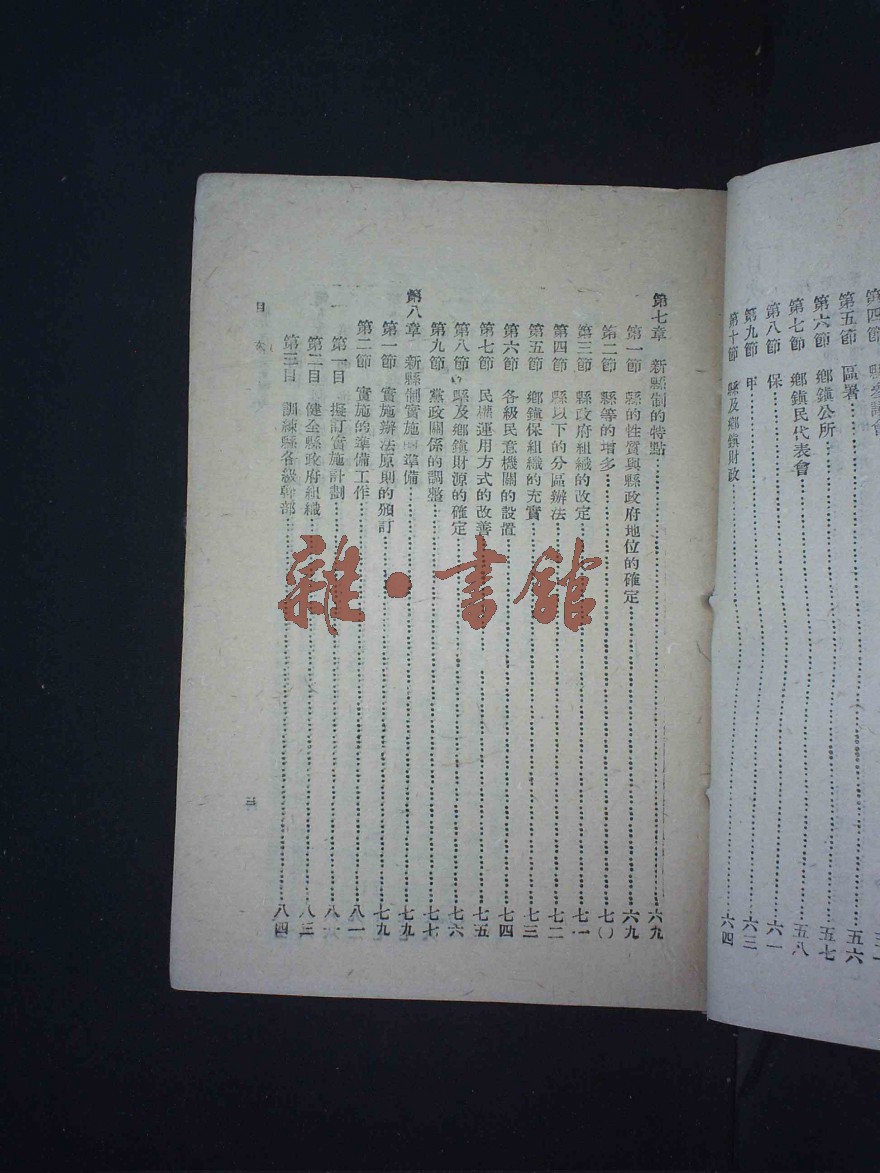 第四節　縣參議會
第五節　區署……五六
第六節　鄉鎭公所……五七
第七節　鄉鎭民代表會……五八
第八節　保……六一
第九節　甲……六三
第十節　縣及鄉鎭財政……六四
第七章　新縣制的特點……六九
第一節　縣的性質與縣政府地位的確定……六九
第二節　縣等的增多……七〇
第三節　縣政府組織的改定……七一
第四節　縣以下的分區辦法……七二
第五節　鄉鎭保組織的充實……七三
第六節　各級民意機關的設置……七四
第七節　民權運用方式的改善……七五
第八節　縣及鄉鎭財源的確定……七六
第九節　黨政關係的調整……七七
第八章　新縣制實施的準備……七九
第一節　實施辦法原則的頒訂……七九
第二節　實施的準備工作……八一
第一目　擬訂實施計劃……八一
第二目　健全縣政府組織……八三
第三目　訓練縣各級幹部……八四
目　次
三
雜·書館